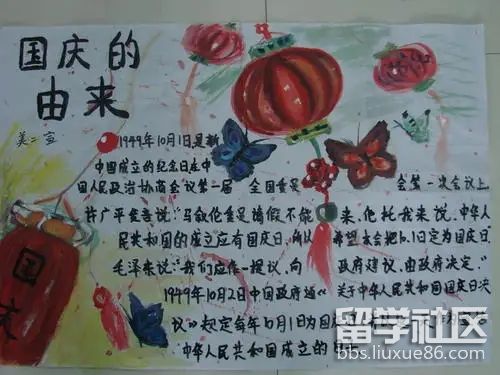 国庆的
由来
美二宣
1949年10月1日是新
中国成立的纪念日在中
国人民政治协商会议第一届 全国委员 会第一次会议上
许广平发言说:"马叙伦委员请假不能 来,他托我来说,中华人
民共和国的成立应有国庆日,所以 希望本会把10.1日定为国庆日.
毛泽东说"我们应作一提议,向 政府建议,由政府决定."
1949年10月2日中国政府通《 关于中华人民共和国国庆日决
议》规定每年10月1日为国庆
中华人民共和国成立的
国庆
留学社区
bbs.liuxue86.com